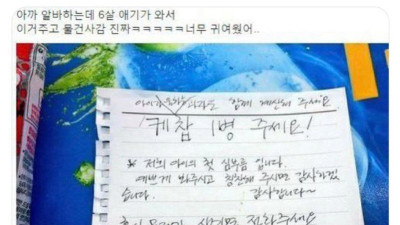 아까 알바하는데 6살 애기가 와서
이거주고 물건사감 진짜ㅋㅋㅋㅋㅋ너무 귀여웠어..
함께 계산해 주세요
케찹 1병 주세요!
※ 저희 아이의 첫 심부름 입니다.
예쁘게 봐주시고 칭찬해 주시면 감사하겠
습니다. 감사합니다~
전화주세요